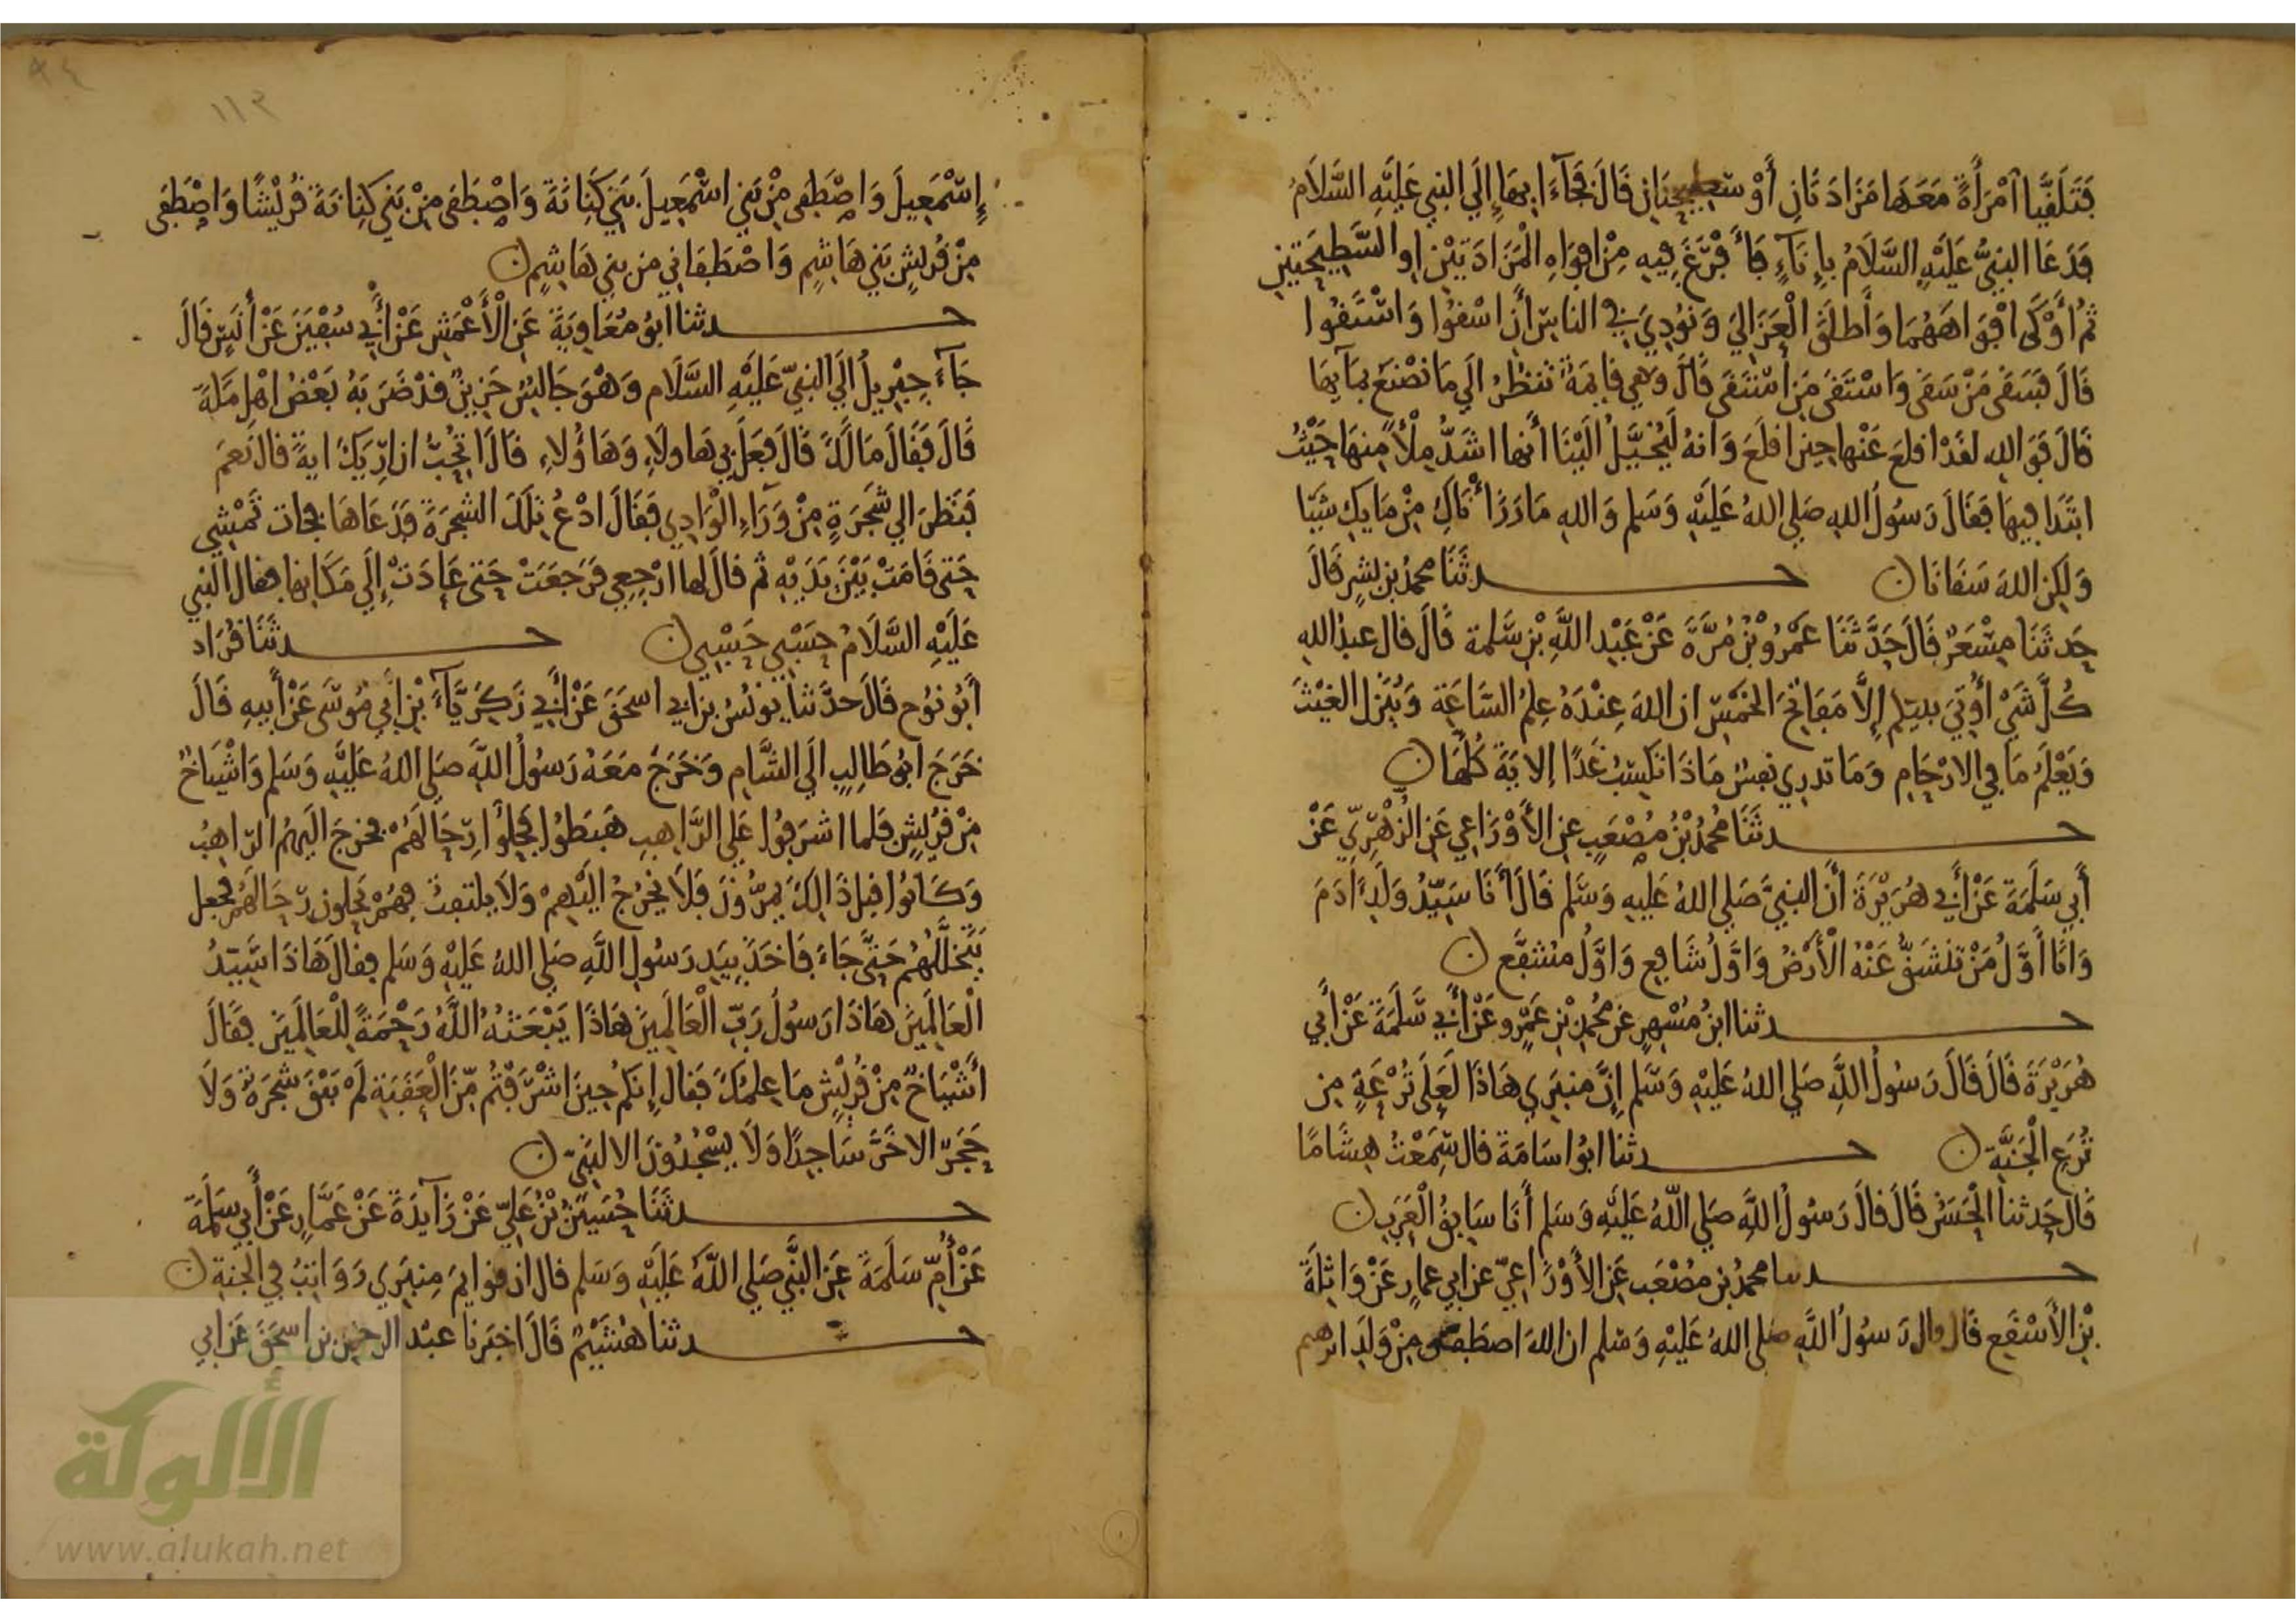 فَتَلَقَّيَا امْرَأَةً مَعَهَا مَزَادَتَانِ أَوْ سَطِيحَتَانِ قَالَ فَجَآءَا بِهَا إِلَى النبي عَلَيْهِ السَّلَامُ
فَدَعَا النبيُّ عَلَيْهِ السَّلَامُ بِإِنَآءٍ فَأَفْرَغَ فِيهِ مِنْ افوَاهِ الْمَزَادَتَيْنِ او السَّطِيحَتَيْنِ
ثُم أَوْكَى افْوَاهَهُمَا وَأَطلَقَ الْعَزَالِيَ وَنُودِيَ فِي الناسِ أَنِ اسْقُوا وَاسْتَقُوا
قَالَ فَسَقَى مَنْ سَقَى وَاسْتَقَى مَنِ اسْتَقَى قَالَ وَهي قايمَةٌ تَنْظُرُ الَى مَا نَصْنَعُ بمَآيِهَا
قَالَ فَوَ الله لقَدْ اقلعَ عَنْهَا حِينَ اقلَعَ وَانهُ لَيُخَيَّلُ الَيْنَا أنها اشَدُّ مِلْأً مِنهَا حَيْثُ
ابتَدَا فِيهَا فَقَالَ رَسُولُ اللهِ صَلي اللهُ عَلَيْهِ وَسَلم وَاللهِ مَا رَزَأْنَاكِ مِنْ مَايِكِ شَيْا
وَلَكِنَّ اللهَ سَقَانَا ن حـــدثَنَا محمدُ بن بِشرٍ قَالَ
حَدثَنَا مِسْعَرٌ قَالَ حَدَّثَنَا عَمْرُو بْنُ مُرَّةَ عَنْ عَبْدِ اللَّهِ بْنِ سَلِمة قَالَ قال عبدُ اللهِ
كُلَّ شَيْ أُوتِيَ نبيكم إِلَّا مَفَاتِحَ الخَمْسِ ان اللهَ عِنْدَهُ عِلمُ السَّاعَةِ وَيُنَزل الغَيْثَ
وَيَعْلَمُ مَا فِي الارْحَامِ وَمَا تدرِي نفسٌ مَاذَا تَكسِبُ غَدًا الايَةَ كُلَّهَا ن
حـــدثَنَا مُحمدُ بْنُ مُصْعَبٍ عنِ الأَوْزَاعِي عَنِ الزُّهْرِيِّ عَنْ
أَبِي سَلَمَةَ عَنْ أَبِي هُرَيْرَةَ أَنَّ النبيَّ صَلي اللهُ عَلَيهِ وَسَّلم قَالَ أَنَا سَيِّدُ وَلَدِ ادَمَ
وَانَا أَوَّلُ مَنْ تَنْشَقُّ عَنْهُ الْأَرْضُ وَاوَّلُ شَافِعٍ وَاوَّلُ مُشفَّعٍ ن
حـــدثنا ابنُ مُسْهِرٍ عن مُحمدِ بْنِ عَمْرٍو عَنْ أَبِي سَلَمَةَ عَنْ أَبي
هُرَيْرَةَ قَالَ قَالَ رَسُولُ اللَّهِ صَلي اللهُ عَلَيْهِ وَسَّلم إِنَّ مِنبَري هَاذَا لَعَلَى تُرْعَةٍ من
تُرَعِ الْجَنَّةِ ن حـــدثنا ابُو اسَامَةَ قال سَمِعْتُ هِشَامًا
قَالَ حَدثنا الْحَسَنُ قَالَ قالَ رَسُولُ اللَّهِ صَلي اللهُ عَلَيْهِ وَسَلم أَنَا سَابِقُ الْعَرَبِ ن
حـــدثنا محمدُ بن مُصْعَب عَنِ الأَوْزَاعِيِّ عن ابي عمارٍ عَنْ وَاثِلَةَ
بْنِ الأَسْقَعِ قَالَ قال رَسُولُ اللَّهِ صلى اللهُ عَلَيْهِ وَسَّلم ان اللهَ اصطَفَى مِنْ وَلَدِ ابرهيم
٩٤
١١٣
إِسْمَعِيلَ وَاصْطَفَى مِنْ بَنِي اسْمَعِيلَ بَنِي كِنَانَةَ وَاصْطَفَى مِنْ بَنِي كِنَانَةَ قُرَيْشًا وَاصْطَفَى
مِنْ قُرَيشٍ بَنِي هَاشِمٍ وَاصْطَفَانِي مِن بني هَاشِمٍ ن
حـــدثنا ابُو مُعَاوِيَةَ عَنِ الْأَعْمَشِ عَنْ أَبِي سُفْيَنَ عَنْ أَنَسٍ قَالَ
جَآءَ جِبْرِيلُ الَى النبيِّ عَلَيْهِ السَّلَام وَهْوَ جَالِسٌ حَزِينٌ قدْ ضَرَبَهُ بَعْضُ اهْلِ مَكَةَ
قَالَ فَقَالَ مَا لَكَ قَالَ فَعَلَ بِي هَاولَاءِ وَهَاؤُلاءِ قَالَ اتُحِبُّ ان ارِّيَكَ ايَةً قال نَعَم
فَنَظَرَ الي شَجَرَةٍ مِنْ وَرَآءِ الْوَادِي فَقَالَ ادْعُ تِلْكَ الشجَرَةَ فَدَعَاهَا فجَات تَمْشِي
حَتى قَامَتْ بَيْنَ يَدَيْهِ ثم قالَ لها ارْجِعِي فَرَجعَتْ حَتى عَادَتْ إِلَى مَكَانِها فقال النبي
عَلَيْهِ السَّلَامُ حَسْبِي حَسْبِي ن حـــدثَنَا قُرَاد
أَبُو نُوح قَالَ حدَّثنا يونُسُ بن ابي اسحَقَ عَنْ أَبِي زَكَرِيَّآءَ بْنِ ابِي مُوسَى عَنْ أَبيهِ قَالَ
خَرَجَ ابُو طَالِبٍ الَى الشَّامِ وَخَرَجَ مَعَهُ رَسُولُ اللَّهِ صَلي اللهُ عَلَيْهِ وَسَلم وَاشْيَاخٌ
مِنْ قُرَيْشٍ فَلما اشرَفُوا عَلي الرَّاهِبِ هَبَطُوا فَحَلُّوا رِحَالَهُمْ فخرَجَ الَيهمُ الرّاهِبُ
وَكَانُوا قبلَ ذَالِكَ يَمرُّونَ فَلَا يَخْرُجُ الَيْهِمْ وَلَا يلتفِتُ فهُمْ يَحِلون رحَالَهُمْ فجعل
يَتَخَلَّلُهُم حَتَّى جَاءَ فاخَذَ بِيَدِ رَسُولِ اللَّهِ صَلي اللهُ عَلَيْهِ وَسَلم فقالَ هَاذَا سَّيِّدُ
الْعَالَمِينَ هَاذَا رَسُولُ رَبِّ الْعَالَمِينَ هَاذَا يَبْعَثُهُ اللَّهُ رَحْمَةً لِلْعَالَمِينَ فَقَالَ
أَشْيَاخٌ مِنْ قُرَيْشٍ مَا عِلمُكَ فَقال إِنكم حِينَ اشْرَفْتُم مِّنَ الْعَقَبَةِ لَمْ يَبْقَ شَجَرَةٌ وَلَا
حَجَرٌ الا خَرَّ سَاجِدًا وَلَا يَسْجُدُونَ الا لنَبيٍّ ن
حـــدثَنَا حُسَيْنُ بْنُ عَلِيٍّ عَنْ زَآيدَةَ عَنْ عَمَّارٍ عَنْ أَبِي سَلَمَةَ
عَنْ أُمِّ سَلَمَةَ عَنِ النَّبِيِّ صَلي اللَّهُ عَلَيْهِ وَسَلم قال ان قوايمَ مِنبَرِي رَوَاتِبُ فِي الجَنةِ ن
حـــدثنا هُشَيْمٌ قَالَ اخبَرنا عبْد الرحمن بن اسحَقَ عَن ابي
الألوكة
www.alukah.net